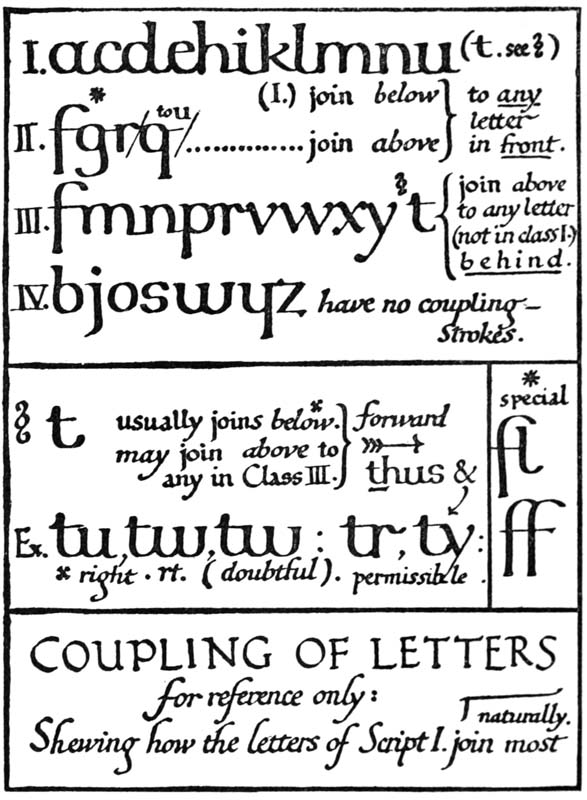 I. acdehiklmnu (t. see ʒ)
(I.) join below } to any
letter
II. f*gr/q to u/............... join above } in front.
III. fmnprvwxy t { join above
to any letter
(not in class I.)
behind.
IV. bjoswyz have no coupling–
strokes.
t usually joins below.* } forward
may join above to
any in Class III. } thus &
Ex. tu, tw, tw : tr, ty :
* right . rt. (doubtful). permissible .
* special
fl
ff
COUPLING OF LETTERS
for reference only:
Shewing how the letters of Script I. join most naturally.